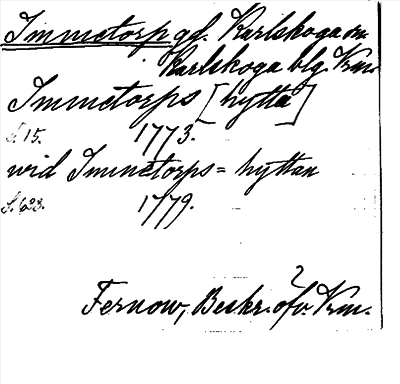 Immetorp gd. Karlskoga sn
Karlskoga blg. Vrm.
Immetorps [hytta]
S. 15. 1773.
wid Immetorps=hyttan
S. 623. 1779.
2
Fernow, Beskr. öfv. Vrm.